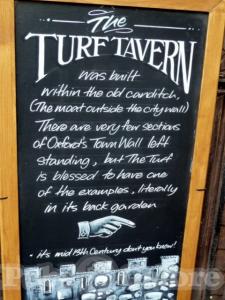 The
TURF TAVERN
was built
within the old canditch,
(The moat outside the city wall)
There are very few sections
of Oxford's Town Wall left
standing, but The Turf
is blessed to have one
of the examples, literally
in its back garden
• it's mid 13th Century dont you know!